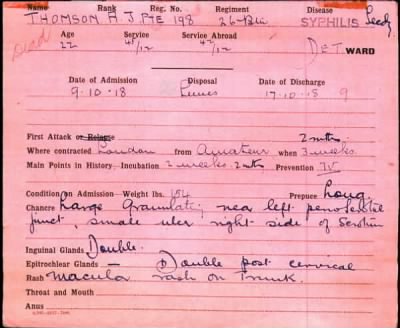 Name Rank Reg. No. Regiment Disease
THOMSON H J PTE 198 26-Btn SYPHILIS Secdy
Dead
Age Service Service Abroad
22 4⁄12 4⁄12 DET WARD
Date of Admission Disposal Date of Discharge
9-10-18 17-10-18 9
First Attack or Relapse 2 mths
Where contracted London from Amateur when 3 weeks
Main Points in History, Incubation 2 weeks Prevention
Condition on Admission — Weight lbs. 154 Prepuce Long
Chancre Large Granulatg near left peno scrotal
junct, small ulcer right side of Scrotum
Inguinal Glands Double.
Epitrochlear Glands — Double post cervical
Rash Macular rash on Trunk.
Throat and Mouth
Anus